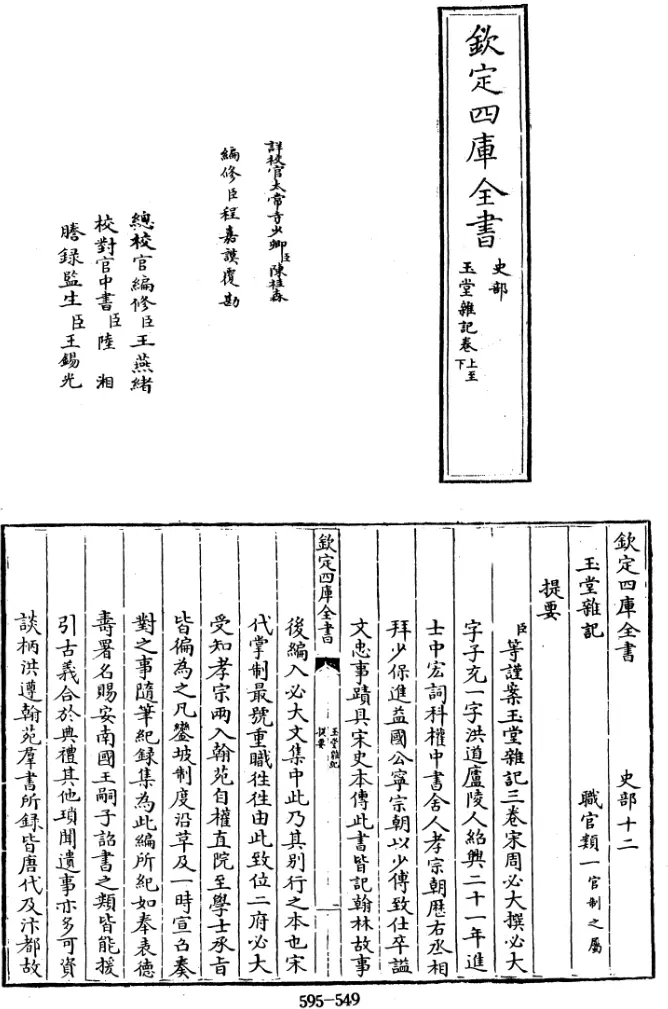 欽定四庫全書
史部
玉堂雜記卷上至
下
詳校官太常寺少卿臣陳桂森
編修臣程嘉謨覆勘
總校官編修臣王燕緒
校對官中書臣陸湘
謄録監生臣王錫光
欽定四庫全書 史部十二
玉堂雜記 職官類一官制之屬
提要
臣等謹案玉堂雜記三卷宋周必大撰必大
字子充一字洪道廬陵人紹興二十一年進
士中宏詞科權中書舍人孝宗朝歴右丞相
拜少保進益國公寧宗朝以少傅致仕卒諡
文忠事蹟具宋史本傳此書皆記翰林故事
欽定四庫全書
玉堂雜記
提要
後編入必大文集中此乃其别行之本也宋
代掌制最號重職徃徃由此致位二府必大
受知孝宗兩入翰苑自權直院至學士承旨
皆徧為之凡鑾坡制度沿革及一時宣召奏
對之事隨筆紀録集為此編所紀如奉表德
壽署名賜安南國王嗣子詔書之類皆能援
引古義合於典禮其他瑣聞遺事亦多可資
談柄洪遵翰苑羣書所録皆唐代及汴都故
595-549